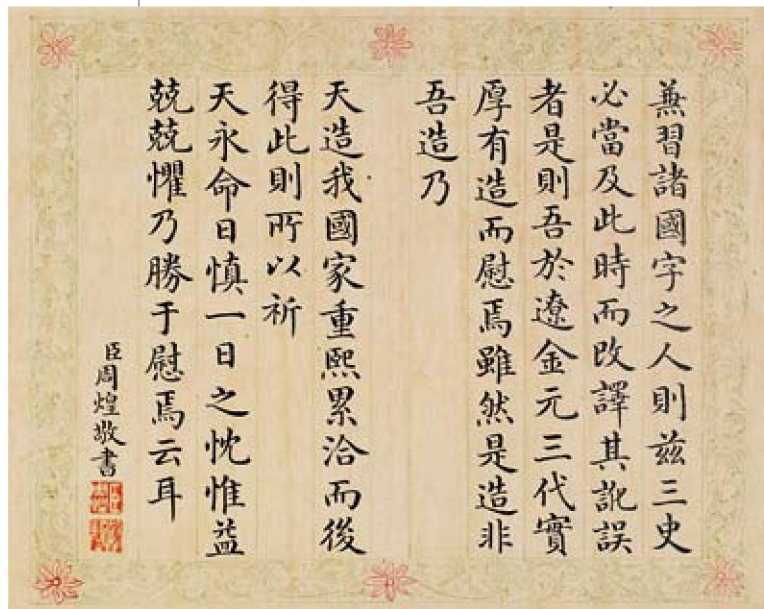 無習諸國字之人則茲三史
必當及此時而改譯其訛誤
者是則吾於遼金元三代實
厚有造而慰焉雖然是造非
吾造乃
天造我國家重熙累洽而後
得此則所以祈
天永命日慎一日之忱惟益
兢兢懼乃勝于慰焉云耳
臣周煌敬書